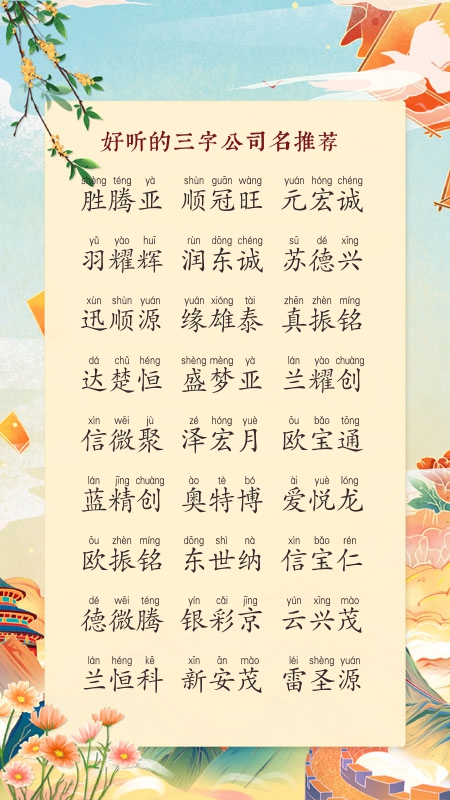 好听的三字公司名推荐
shèng téng yà shùn guān wàng yuán hóng chéng
胜腾亚 顺冠旺 元宏诚
yǔ yào huī rùn dōng chéng sū dé xīng
羽耀辉 润东诚 苏德兴
xùn shùn yuán yuán xióng tài zhēn zhèn míng
迅顺源 缘雄泰 真振铭
dá chǔ héng shèng mèng yà lán yào chuàng
达楚恒 盛梦亚 兰耀创
xìn wēi jù zé hóng yuè ōu bǎo tōng
信微聚 泽宏月 欧宝通
lán jīng chuàng ào tè bó ài yuè lóng
蓝精创 奥特博 爱悦龙
ōu zhèn míng dōng shì nà xìn bǎo rén
欧振铭 东世纳 信宝仁
dé wēi téng yín cǎi jīng yún xīng mào
德微腾 银彩京 云兴茂
lán héng kē xīn ān mào léi shèng yuán
兰恒科 新安茂 雷圣源